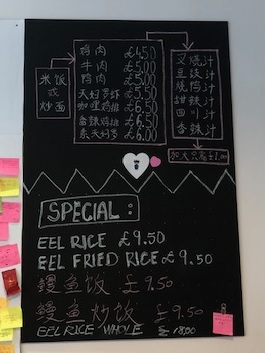 米饭
或
炒面
鸡肉 £4.50
牛肉 £5.00
鸭肉 £5.00
天妇罗虾 £5.50
咖哩鸡排 £6.50
香辣鸡排 £6.50
素天妇罗 £6.00
叉烧汁
豆豉汁
烧鸭汁
甜辣汁
四川汁
香辣汁
£1.00
SPECIAL:
EEL RICE £9.50
EEL FRIED RICE £9.50
鳗鱼饭 £9.50
鳗鱼炒饭 £9.50
EEL RICE WHOLE £18.00